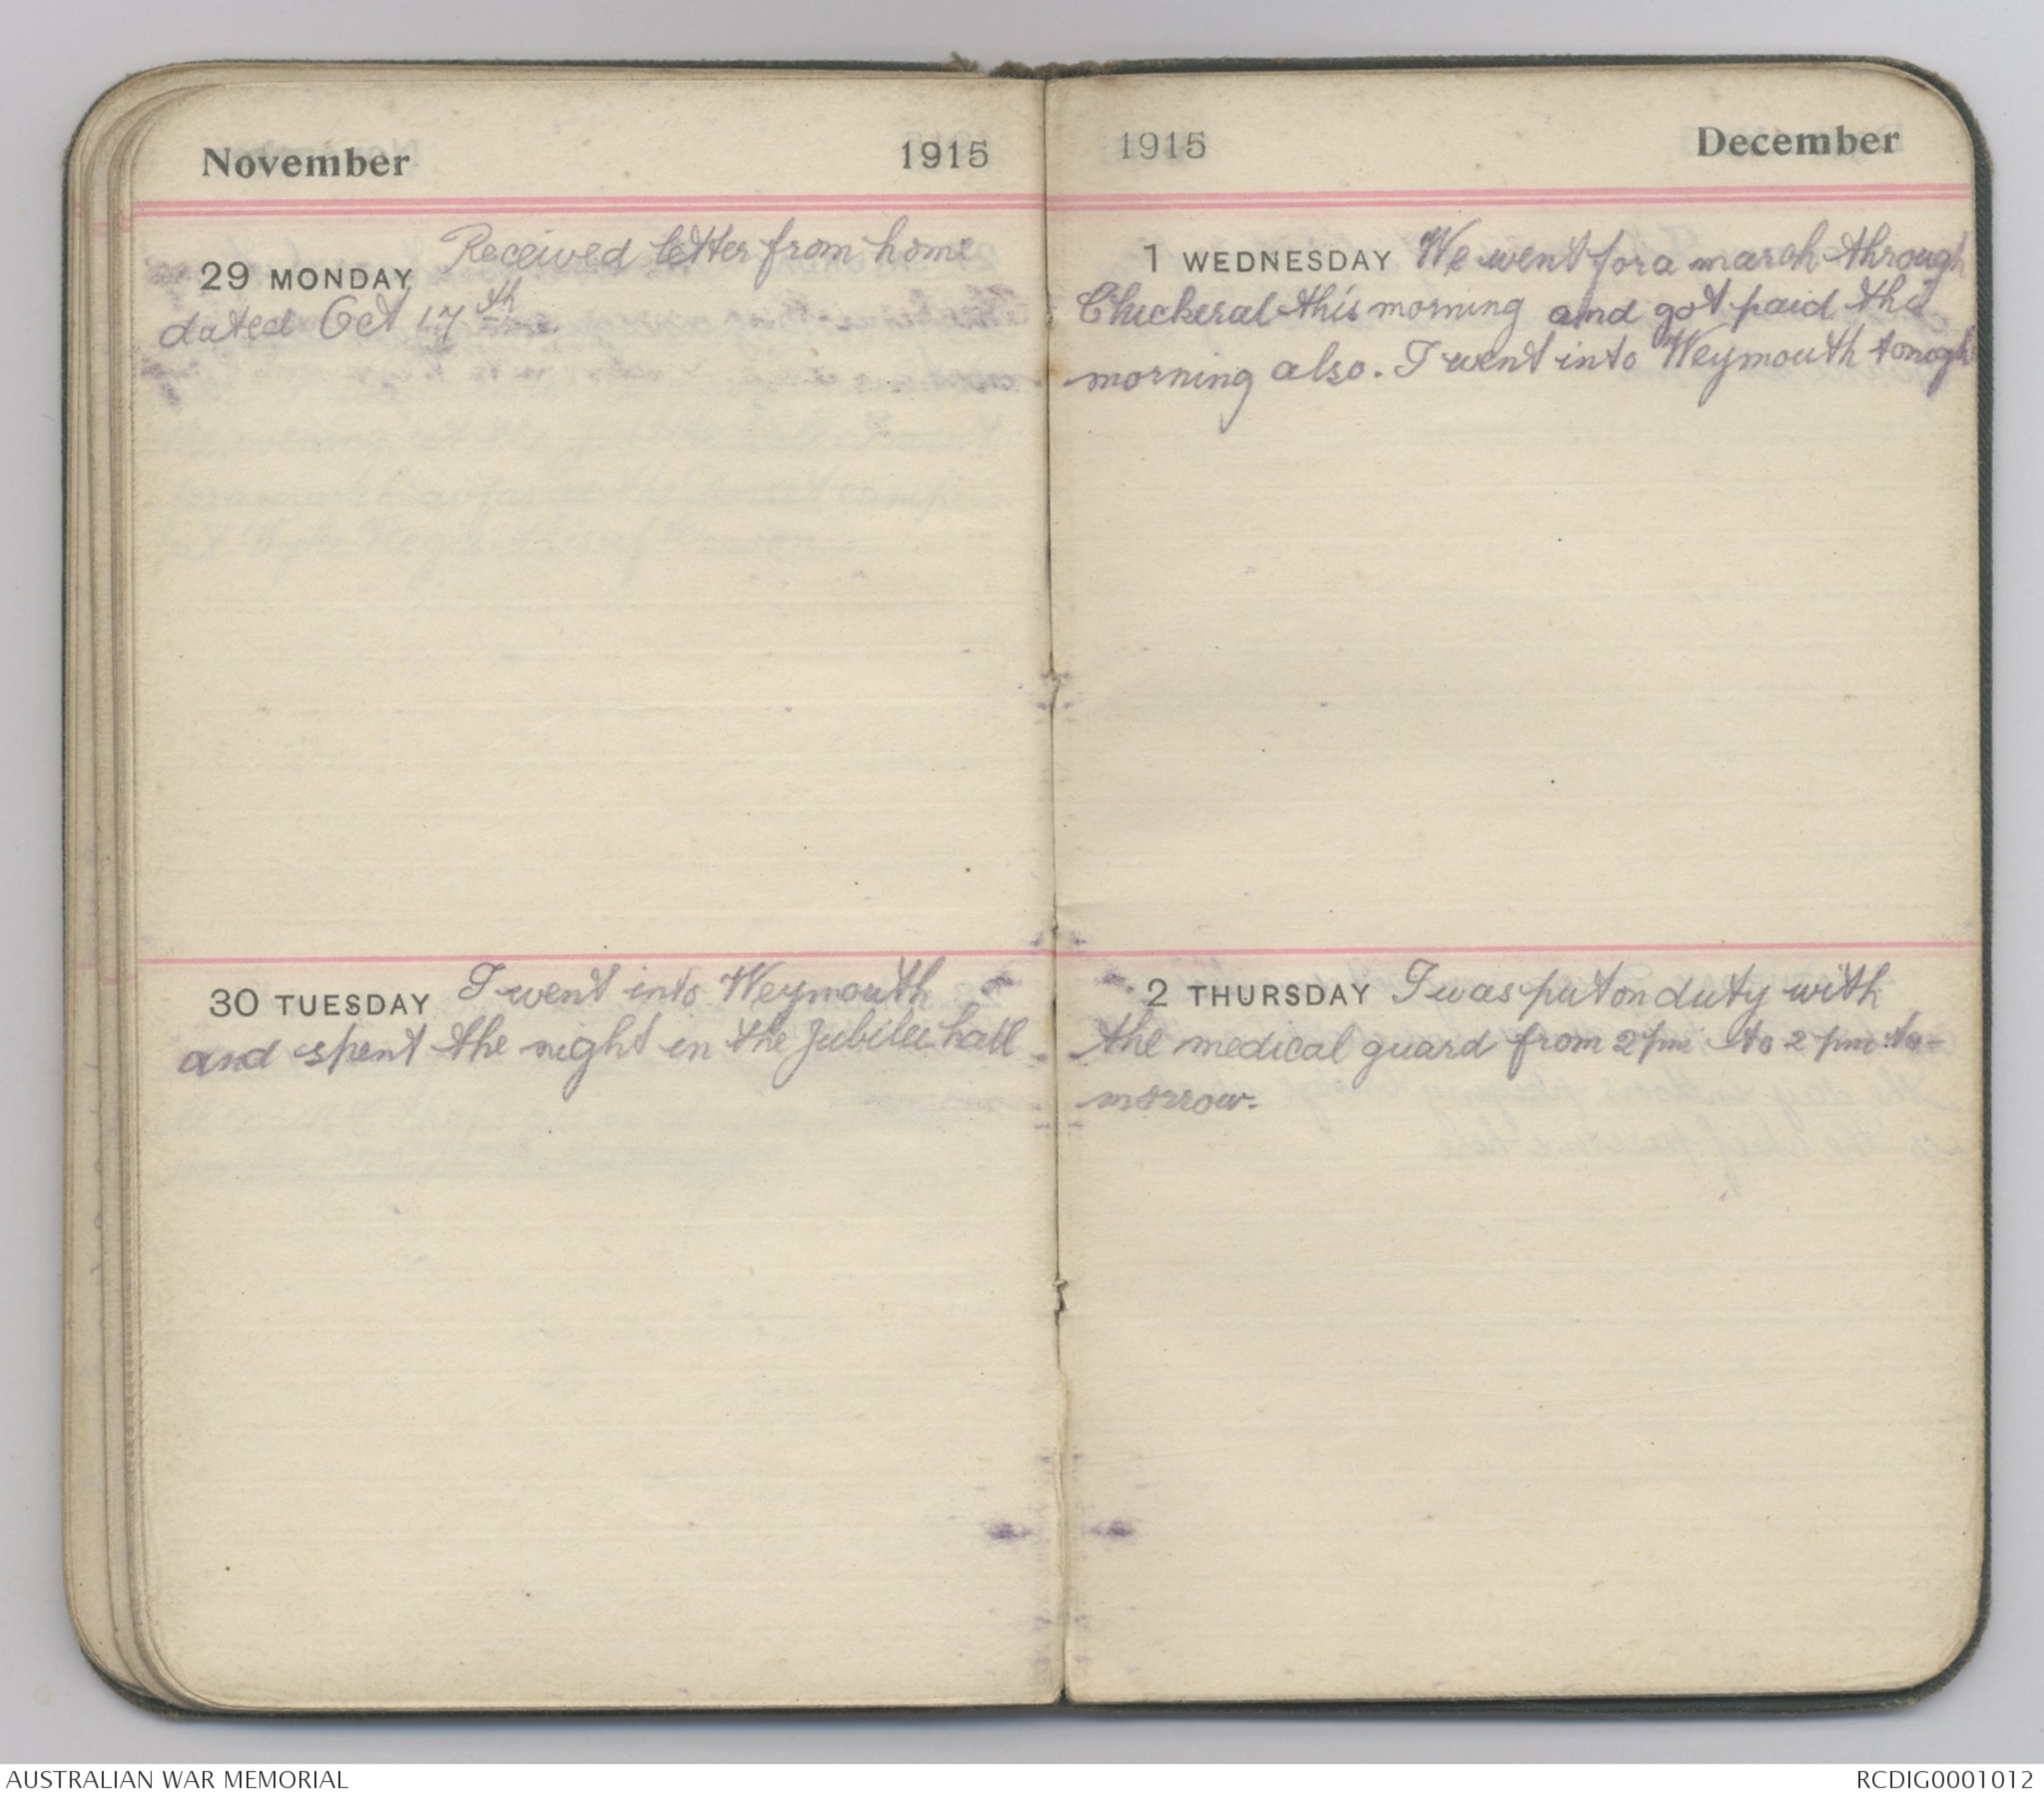 November 1915
Received letter from home
29 MONDAY
dated Oct 17th
30 TUESDAY I went into Weymouth
and spent the night in the Jubilee hall
1915 December
1 WEDNESDAY We went for a march through
Chickeral this morning and got paid this
morning also. I went into Weymouth tonigh
2 THURSDAY I was put on duty with
the medical guard from 2 pm to 2 pm to-
morrow.
AUSTRALIAN WAR MEMORIAL
RCDIG0001012